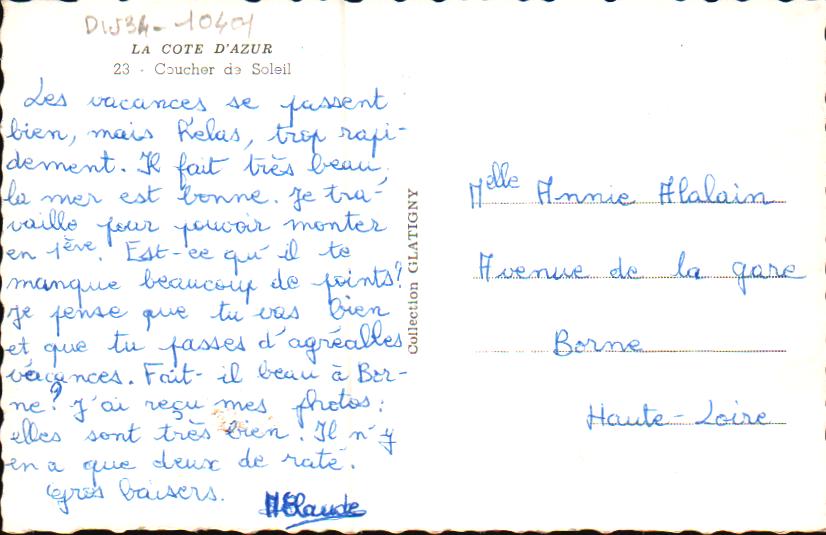 LA COTE D'AZUR
23 - Coucher de Soleil
Les vacances se passent
bien, mais hélas, trop rapi-
dement. Il fait très beau,
la mer est bonne. Je tra-
vaille pour pouvoir monter
en 1ère. Est-ce qu'il te
manque beaucoup de points?
Je pense que tu vas bien
et que tu passes d'agréables
vacances. Fait-il beau à Bor-
ne? J'ai reçu mes photos:
elles sont très bien. Il n'y
en a que deux de raté.
Gros baisers.
Collection GLATIGNY
Melle Annie
Avenue de la gare
Borne
Haute-Loire